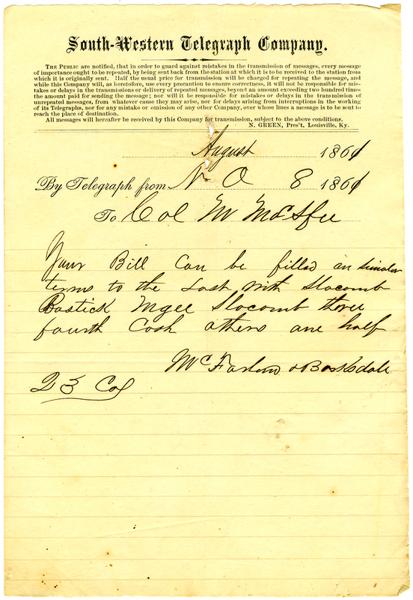 South-Western Telegraph Company.
THE PUBLIC are notified, that in order to guard against mistakes in the transmission of messages, every message
of importance ought to be repeated, by being sent back from the station at which it is to be received to the station from
which it is originally sent. Half the usual price for transmission will be charged for repeating the message, and
while this Company will, as heretofore, use every precaution to ensure correctness, it will not be responsible for mis-
takes or delays in the transmission or delivery of repeated messages, beyond an amount exceeding two hundred times
the amount paid for sending the message; nor will it be responsible for mistakes or delays in the transmission of
unrepeated messages, from whatever cause they may arise, nor for delays arising from interruptions in the working
of its Telegraphs, nor for any mistake or omission of any other Company, over whose lines a message is to be sent to
reach the place of destination.
All messages will hereafter be received by this Company for transmission, subject to the above conditions.
N. GREEN, Pres't, Louisville, Ky.
August 1861
By Telegraph from N O 8 1861
To Col M McAfee
Your Bill can be filled on similar
terms to the last with Slocomb
Bostick Mgee Slocomb three
fourth Cash others one half
McFarland & Barksdale
23 Col